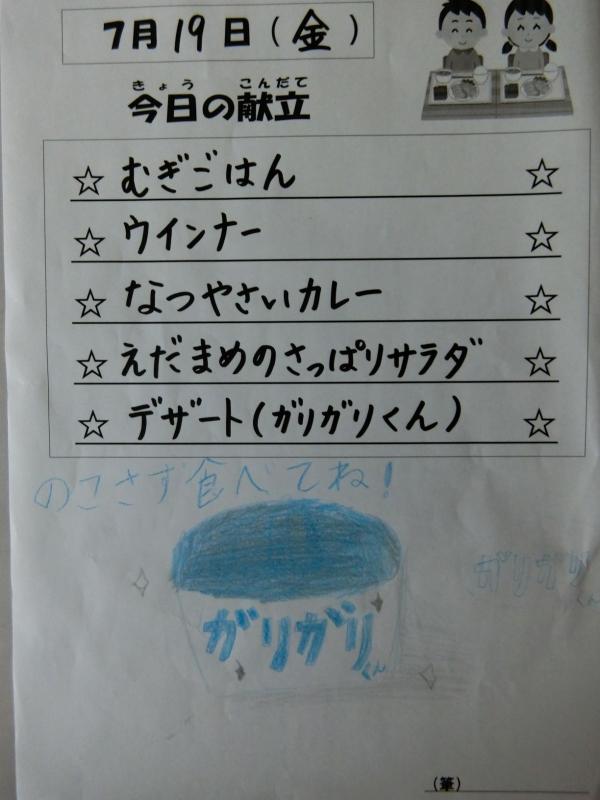 7月19日(金)
きょう こんだて
今日の献立
☆ むぎごはん ☆
☆ ウインナー ☆
☆ なつやさいカレー ☆
☆ えだまめのさっぱりサラダ ☆
☆ デザート(ガリガリくん) ☆
のこさず食べてね!
ガリガリ
くん
ガリガリ
くん
(筆)